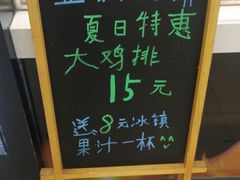 夏日特惠
大鸡排
15元
送8元冰镇
果汁一杯